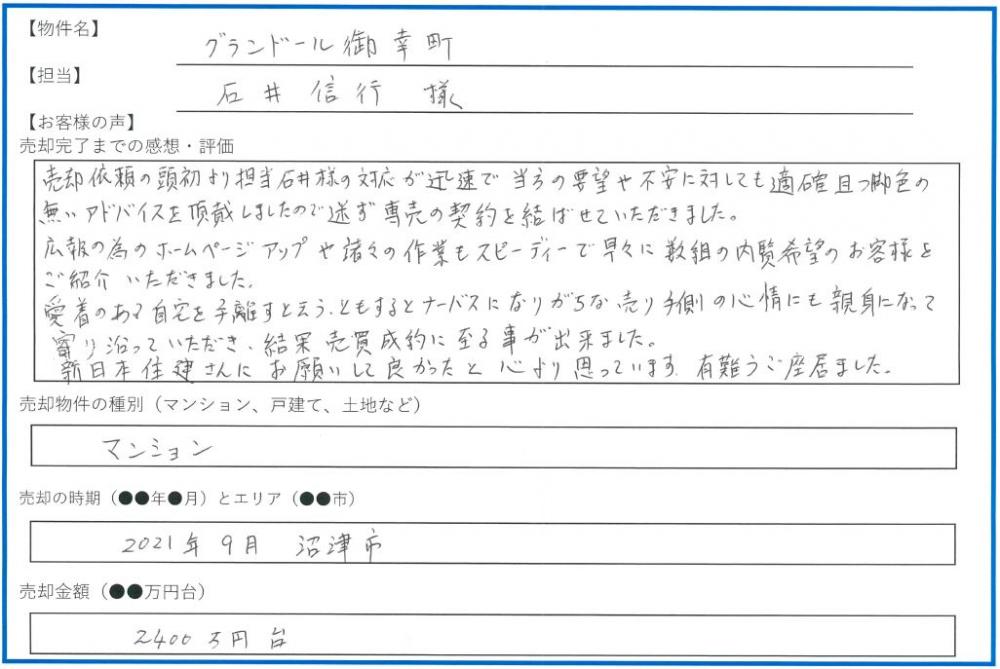 【物件名】
グランドール御幸町
【担当】
石井信行 様
【お客様の声】
売却完了までの感想・評価
売却依頼の頭初より担当石井様の対応が迅速で当方の要望や不安に対しても適確且つ脚色の
無いアドバイスを頂戴しましたので迷ず専売の契約を結ばせていただきました。
広報の為のホームページアップや諸々の作業もスピーディーで早々に数組の内覧希望のお客様を
ご紹介いただきました。
愛着のある自宅を手離すと云う、ともするとナーバスになりがちな売り手側の心情にも親身になって
寄り沿っていただき、結果売買成約に至る事が出来ました。
新日本住建さんにお願いして良かったと心より思っています。有難うご座居ました。
売却物件の種別（マンション、戸建て、土地など）
マンション
売却の時期（●●年●月）とエリア（●●市）
2021年9月 沼津市
売却金額（●●万円台）
2400万円台